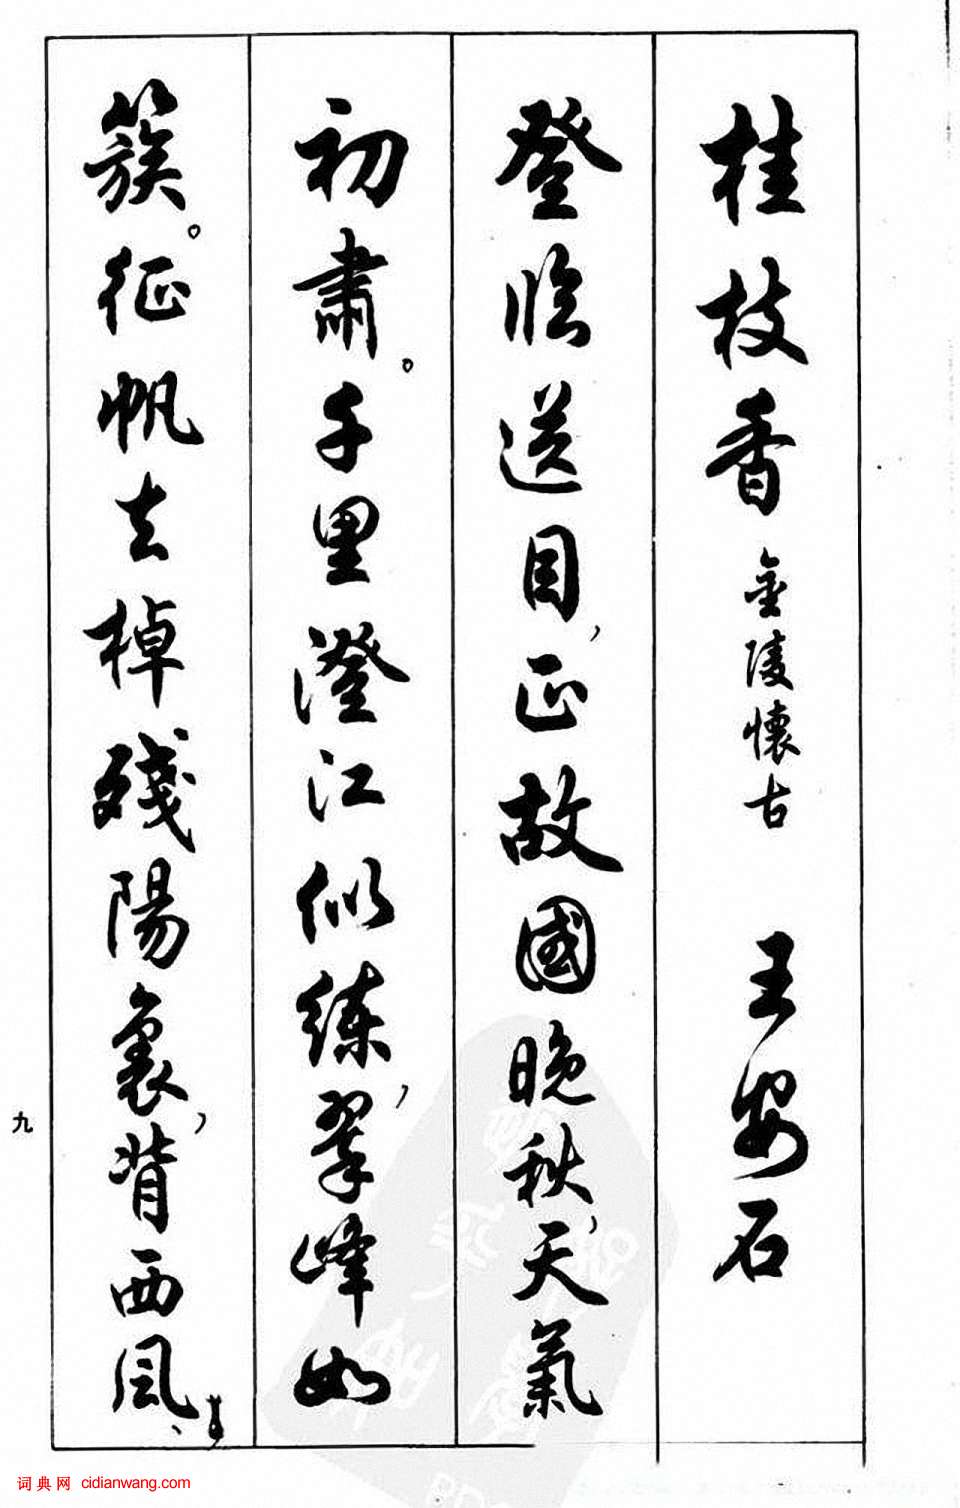 桂枝香 金陵懷古 王安石
登臨送目，正故國晚秋，天氣
初肅。千里澄江似練，翠峰如
簇。征帆去棹殘陽裏，背西風、
九
词典网 cidianwang.com